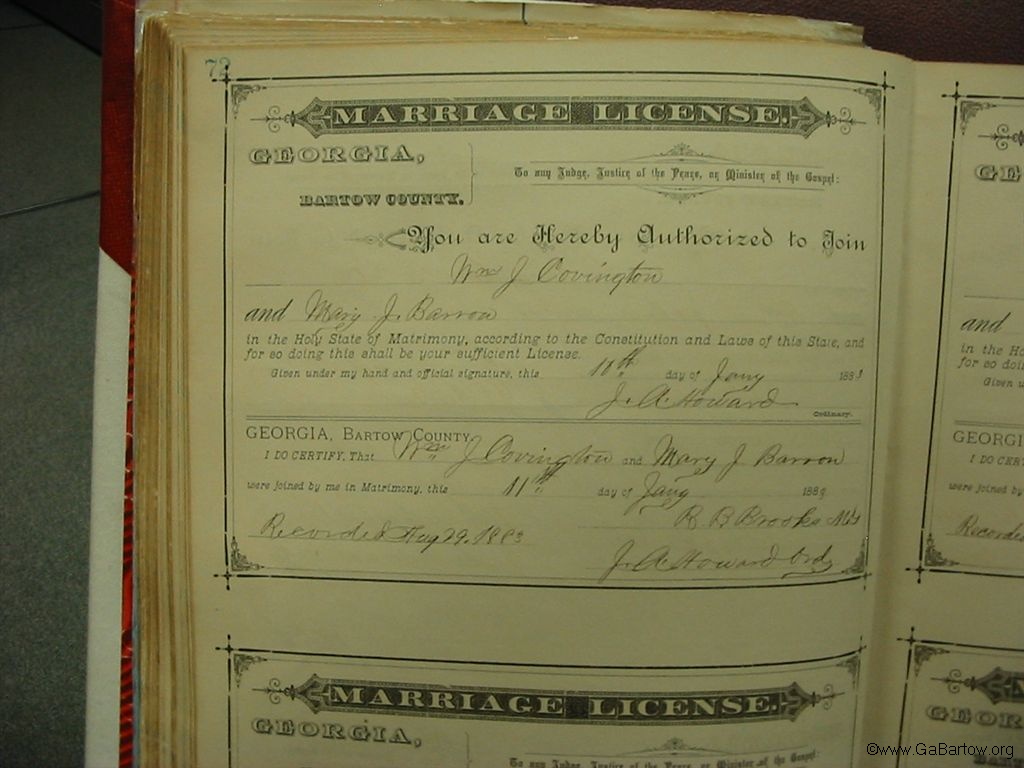 72
MARRIAGE LICENSE.
GEORGIA,
BARTOW COUNTY.
To any Judge, Justice of the Peace, or Minister of the Gospel:
You are Hereby Authorized to Join
Wm J Covington
and Mary J. Barron
in the Holy State of Matrimony, according to the Constitution and Laws of this State, and
for so doing this shall be your sufficient License.
Given under my hand and official signature, this 10th day of Jany 1883
J. A. Howard
Ordinary.
GEORGIA, BARTOW COUNTY.
I DO CERTIFY, That Wm J Covington and Mary J Barron
were joined by me in Matrimony, this 11th day of Jany 188
R B Brooks MG
Recorded Aug 29, 1883
J. A. Howard Ordy
MARRIAGE LICENSE.
GEORGIA,
To any Judge, Justice of the Peace, or Minister of the Gospel:
GE
and
in the Ho
for so doin
Given u
GEORGI
I DO CERT
were joined by
Recorded
GEOR
©www.GaBartow.org